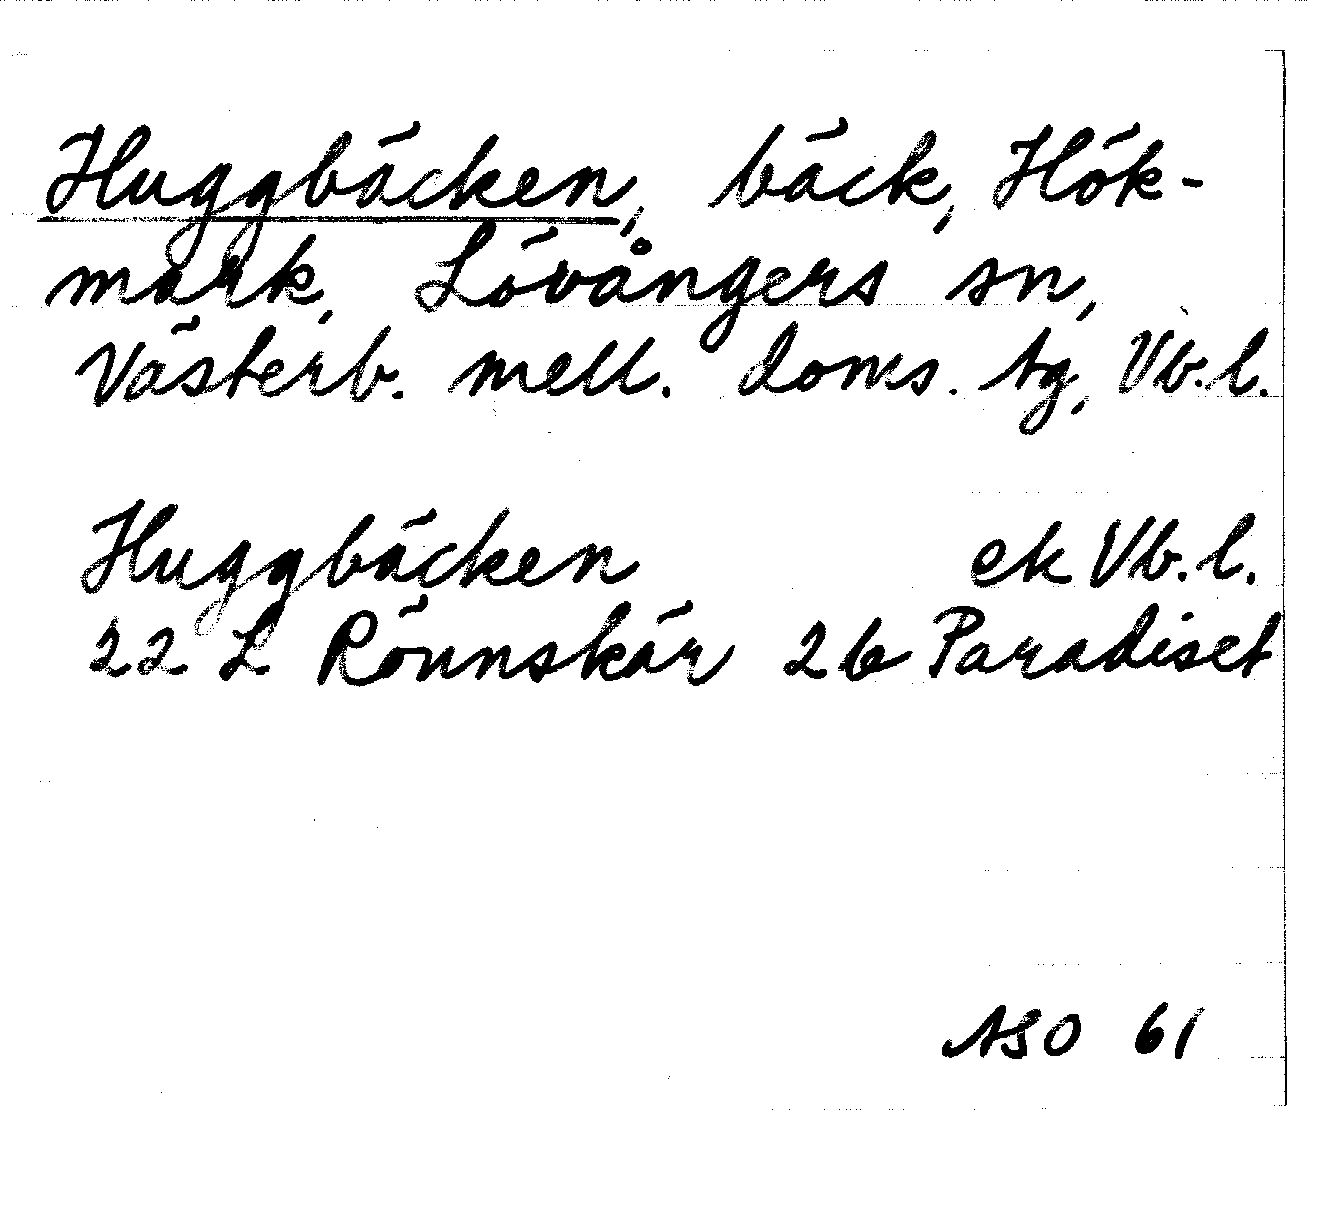 Huggbäcken, bäck, Hök-
mark, Lövångers sn,
Västerb. mell. doms. tg, Vb. l.
Huggbäcken ek Vb. l.
22 L Rönnskär 2b Paradiset
ASO 61